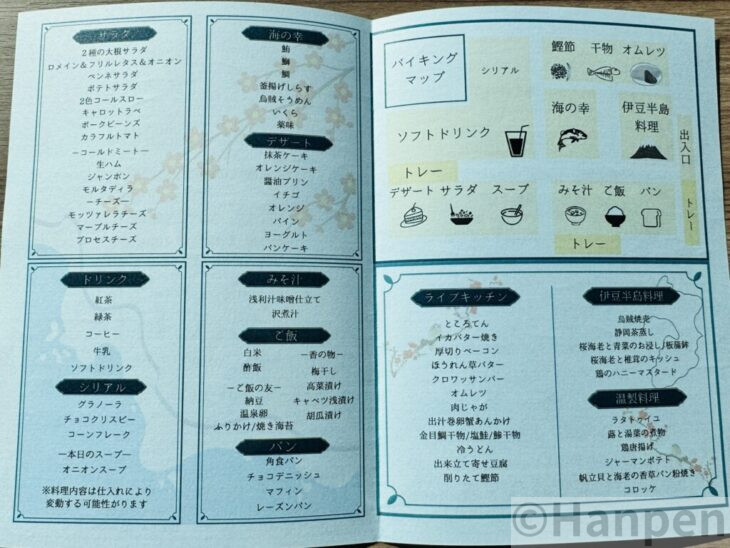 サラダ
2種の大根サラダ
ロメイン＆フリルレタス＆オニオン
ペンネサラダ
ポテトサラダ
2色コールスロー
キャロットラペ
ポークビーンズ
カラフルトマト
―コールドミート―
生ハム
ジャンボン
モルタディラ
―チーズ―
モッツァレラチーズ
マーブルチーズ
プロセスチーズ
海の幸
鮪
鰤
鯛
釜揚げしらす
烏賊そうめん
いくら
薬味
デザート
抹茶ケーキ
オレンジケーキ
醤油プリン
イチゴ
オレンジ
パイン
ヨーグルト
パンケーキ
ドリンク
紅茶
緑茶
コーヒー
牛乳
ソフトドリンク
シリアル
グラノーラ
チョコクリスピー
コーンフレーク
―本日のスープ―
オニオンスープ
※料理内容は仕入れにより
変動する可能性がります
みそ汁
浅利汁味噌仕立て
沢煮汁
ご飯
白米
酢飯
―ご飯の友―
納豆
温泉卵
ふりかけ/焼き海苔
―香の物―
梅干し
高菜漬け
キャベツ浅漬け
胡瓜漬け
パン
角食パン
チョコデニッシュ
マフィン
レーズンパン
バイキング
マップ
シリアル
鰹節 干物 オムレツ
海の幸
伊豆半島
料理
ソフトドリンク
出入口
トレー
デザート サラダ スープ
みそ汁 ご飯 パン
トレー
トレー
ライブキッチン
ところてん
イカバター焼き
厚切りベーコン
ほうれん草バター
クロワッサンバー
オムレツ
肉じゃが
出汁巻卵蟹あんかけ
金目鯛干物/塩鮭/鯵干物
冷うどん
出来立て寄せ豆腐
削りたて鰹節
伊豆半島料理
烏賊焼売
静岡茶蒸し
桜海老と青菜のお浸し/板蒲鉾
桜海老と椎茸のキッシュ
鶏のハニーマスタード
温製料理
ラタトゥイユ
蕗と湯葉の煮物
鶏唐揚げ
ジャーマンポテト
帆立貝と海老の香草パン粉焼き
コロッケ
©Hanpen